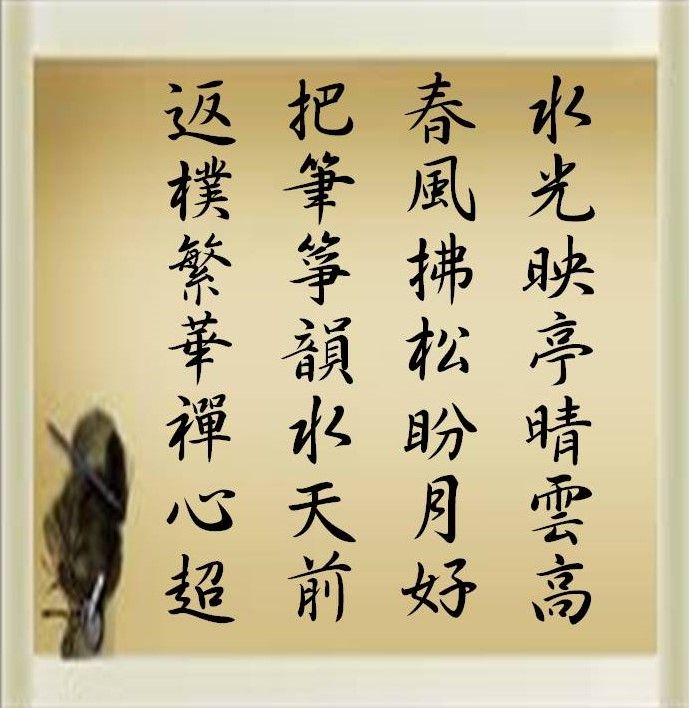 水光映亭晴雲高
春風拂松盼月好
把筆箏韻水天前
返樸繁華禪心超